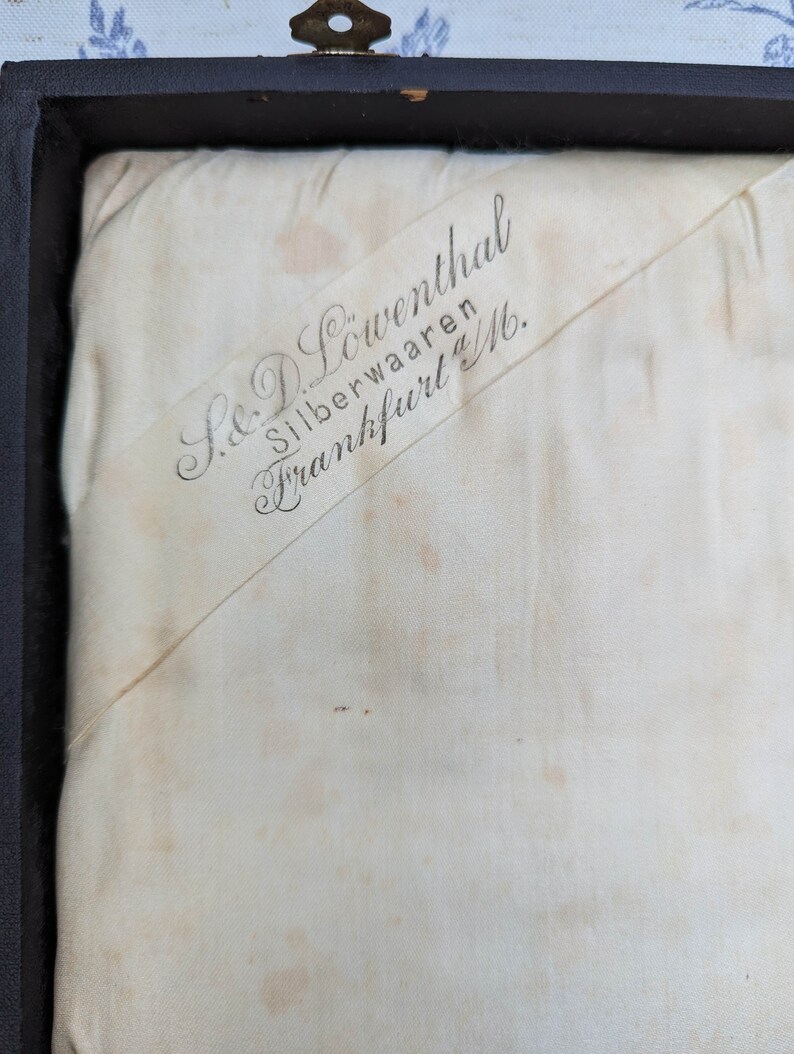 S. & D. Löwenthal
Silberwaaren
Frankfurt a/M.